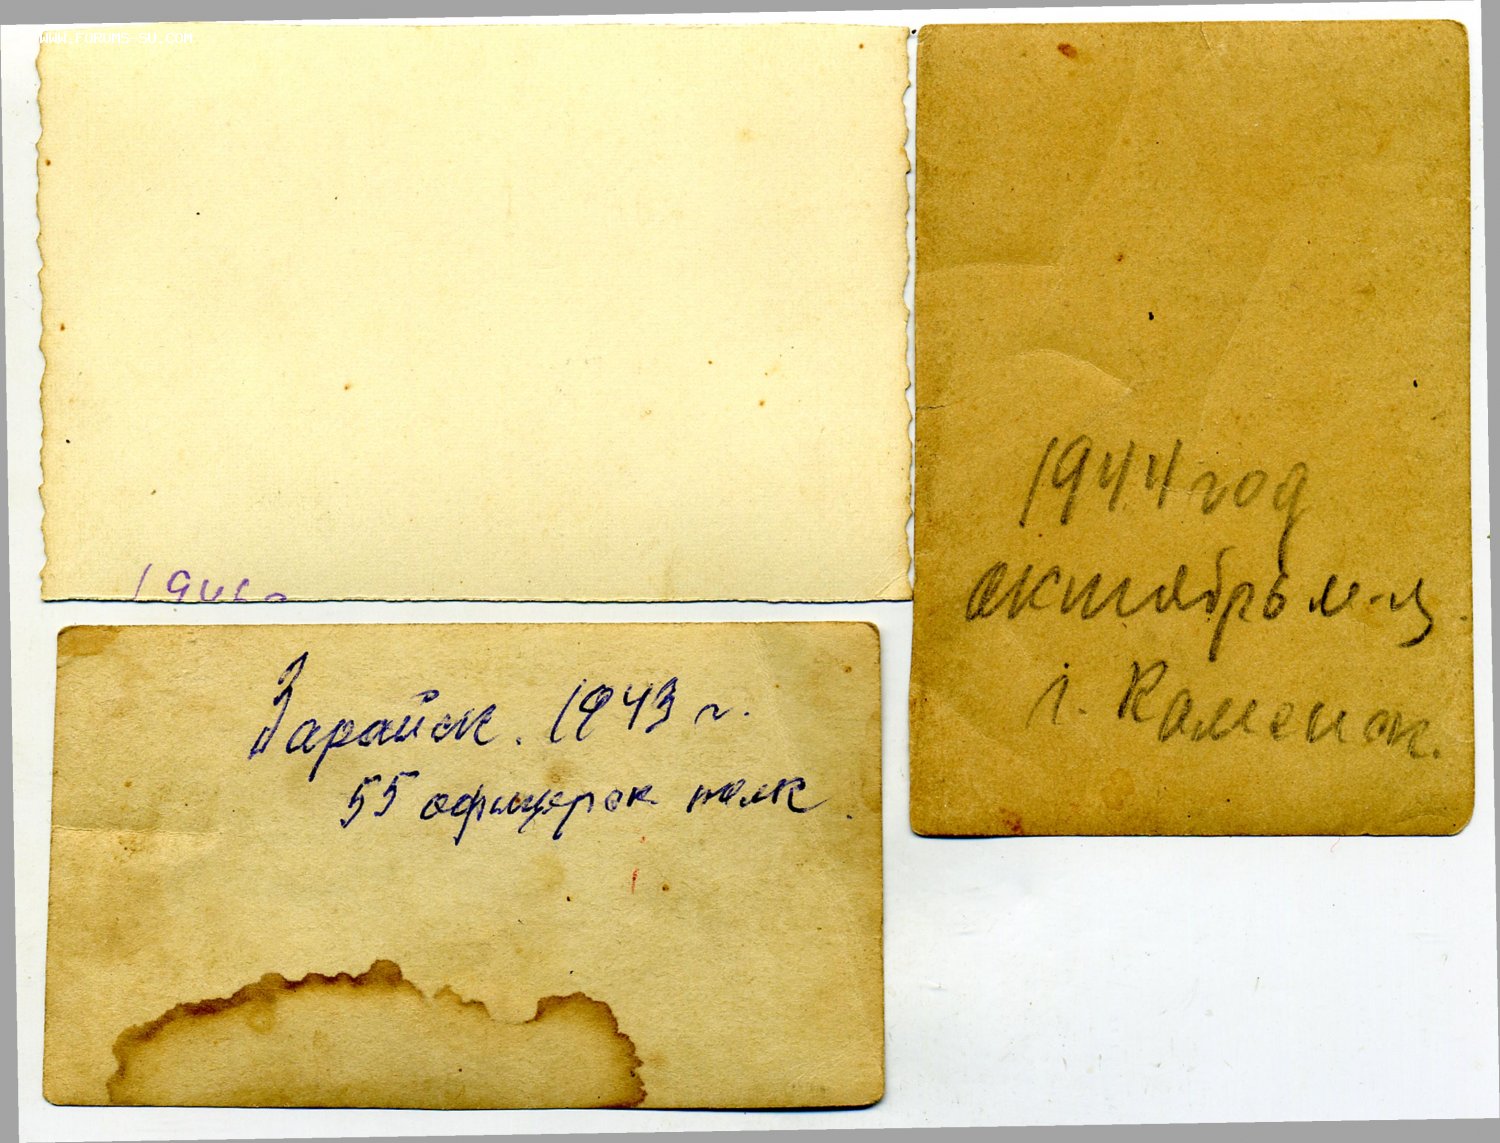 WWW.FORUMS-SU.COM
1944 год
октябрь м-ц.
г. Каменск.
Зарайск. 1943 г.
55 офицерск полк.